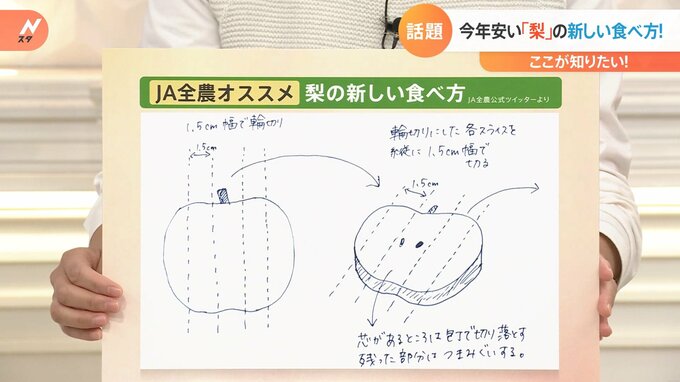 N
スタ
話題
今年安い「梨」の新しい食べ方!
ここが知りたい!
JA全農オススメ 梨の新しい食べ方 JA全農公式ツイッターより
1.5cm 幅で輪切り
1.5cm
輪切りにした 各スライスを
縦に 1.5cm 幅で
切る
1.5cm
芯があるところは包丁で切り落とす
残った部分は つまみぐいする。